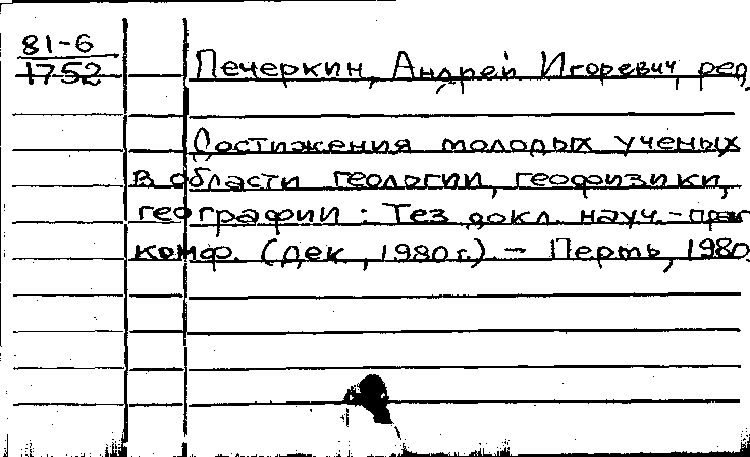 81-6
1752
Печеркин, Андрей Игоревич, ред.
Достижения молодых ученых
в области геологии, геофизики,
географии: Тез докл. науч.-практ
конф. (дек, 1980 г.) - Пермь, 1980.